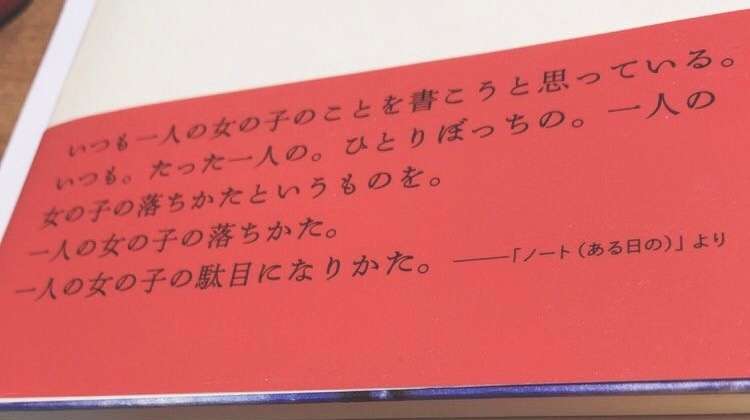 いつも一人の女の子のことを書こうと思っている。
いつも。たった一人の。ひとりぼっちの。一人の
女の子の落ちかたというものを。
一人の女の子の落ちかた。
一人の女の子の駄目になりかた。 ――「ノート(ある日の)」より